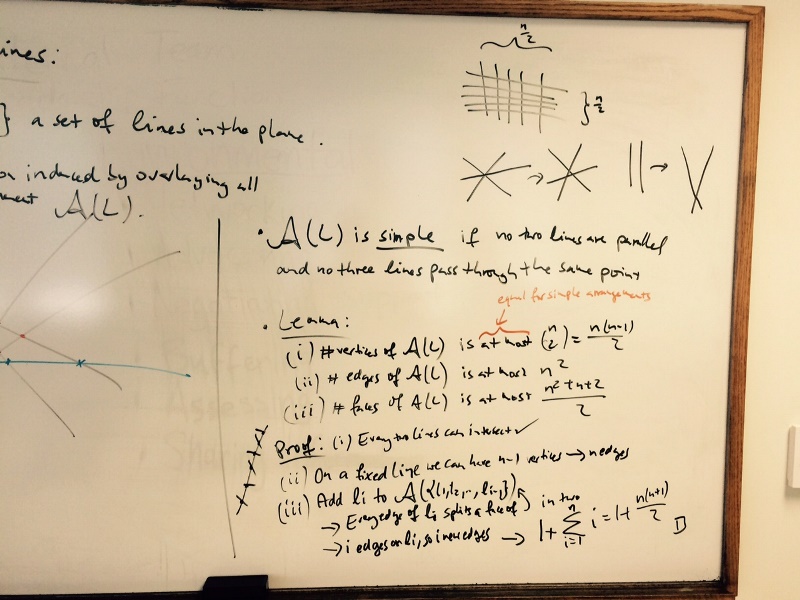 ines:
} a set of lines in the plane.
on induced by overlaying all
ment A(L).
n/2
} n/2
• A(L) is simple if no two lines are parallel
and no three lines pass through the same point
equal for simple arrangements
• Lemma:
(i) # vertices of A(L) is at most (n 2) = n(n-1)/2
(ii) # edges of A(L) is at most n²
(iii) # faces of A(L) is at most n²+n+2/2
Proof: (i) Every two lines can intersect ✓
(ii) On a fixed line we can have n-1 vertices → n edges
(iii) Add li to A({l1, l2, .., li-1})
→ Every edge of li splits a face of in two
→ i edges on li, so i new edges → 1+ n∑i=1 i = 1+ n(n+1)/2 □